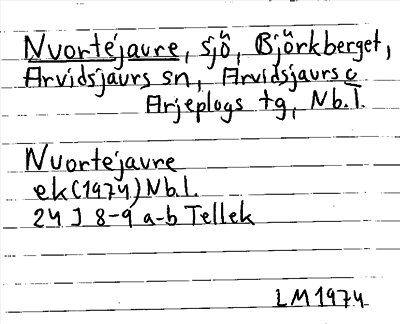 Nuortejaure, sjö, Björkberget,
Arvidsjaurs sn, Arvidsjaurs o
Arjeplogs tg, Nb.l.
Nuortejaure
ek (1974) Nb.l.
24 J 8-9 a-b Tellek
LM 1974